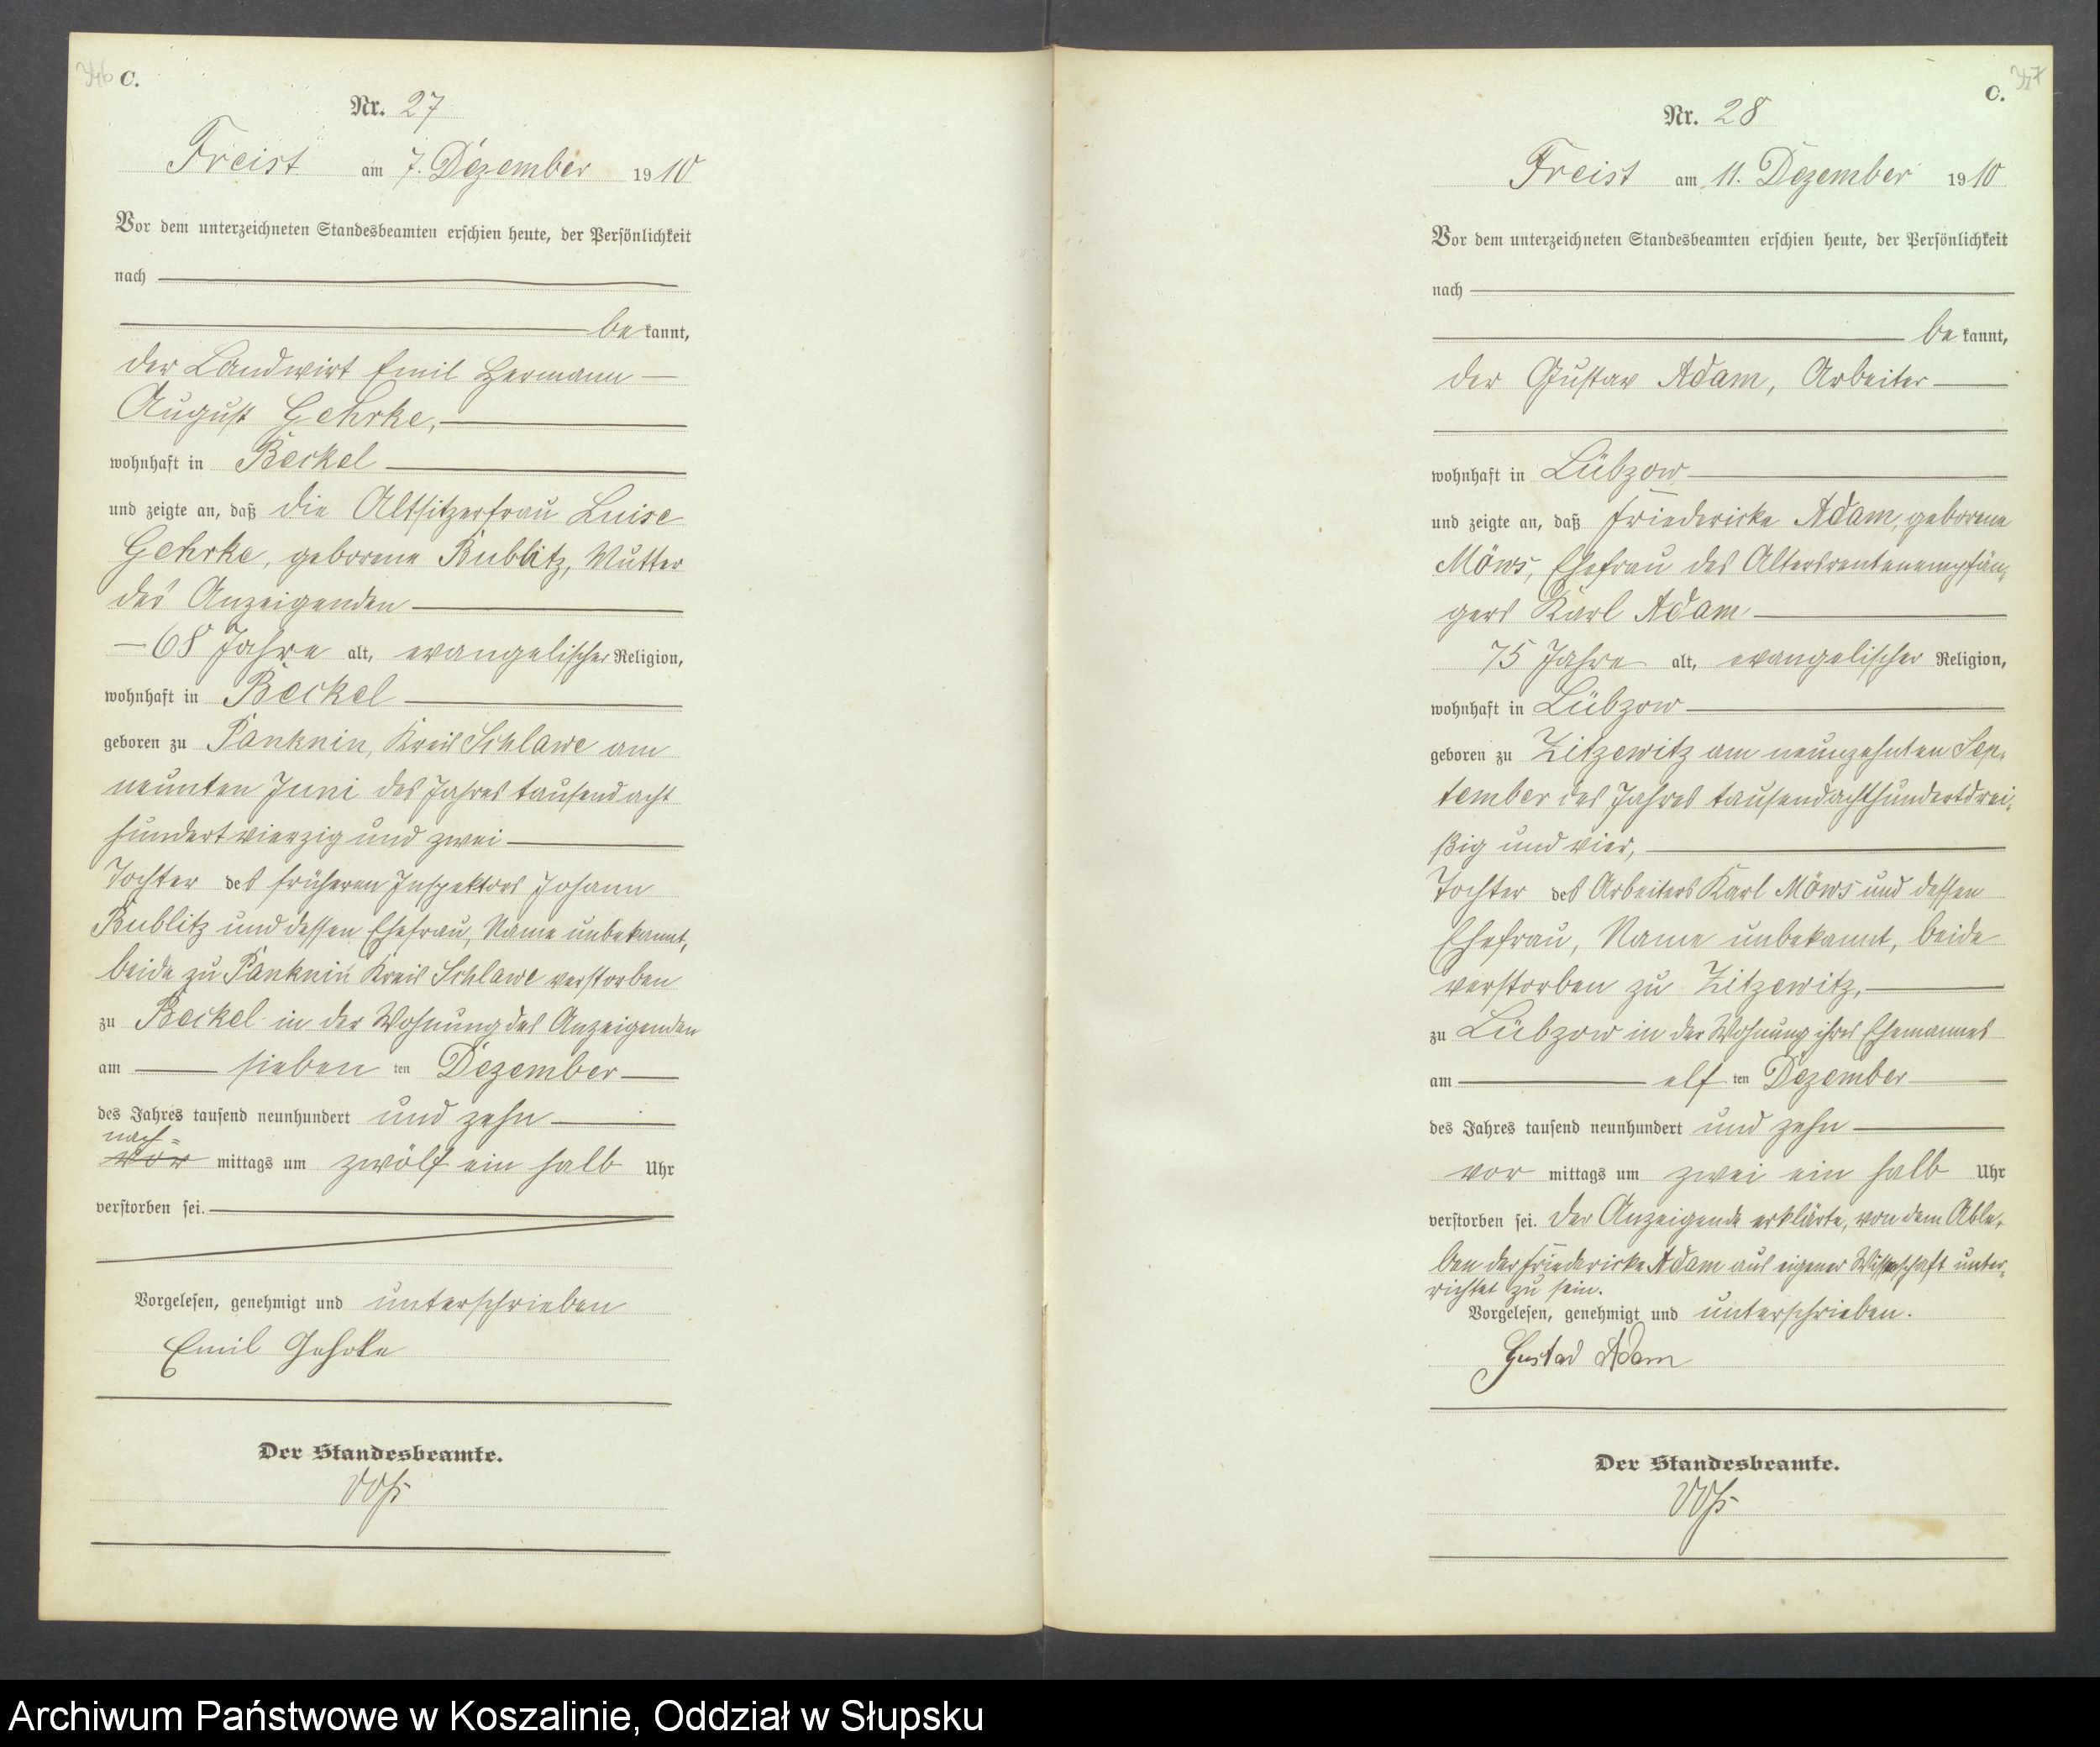 C.
Nr. 27
Freist am 7. Dezember 1910
Vor dem unterzeichneten Standesbeamten erschien heute, der Persönlichkeit
nach
bekannt,
der Landwirt Emil Hermann
August Gehrke,
wohnhaft in Beckel
und zeigte an, daß die Altsitzerfrau Luise
Gehrke, geborene Bublitz, Mutter
des Anzeigenden
68 Jahre alt, evangelischer Religion,
wohnhaft in Beckel
geboren zu Panknin, Kreis Schlawe am
neunten Juni des Jahres tausend acht
hundert vierzig und zwei
Tochter des früheren Inspektors Johann
Bublitz und dessen Ehefrau, Name unbekannt,
beide zu Panknin Kreis Schlawe verstorben
zu Beckel in der Wohnung des Anzeigenden
am siebenten Dezember
des Jahres tausend neunhundert und zehn
nach=
vor mittags um zwölf ein halb Uhr
verstorben sei.
Vorgelesen, genehmigt und unterschrieben
Emil Gehrke
Der Standesbeamte.
Voß
C.
Nr. 28
Freist am 11. Dezember 1910
Vor dem unterzeichneten Standesbeamten erschien heute, der Persönlichkeit
nach
bekannt,
der Gustav Adam, Arbeiter
wohnhaft in Lübzow
und zeigte an, daß Friedericke Adam, geborene
Möws, Ehefrau des Altersrentenempfän-
gers Karl Adam
75 Jahre alt, evangelischer Religion,
wohnhaft in Lübzow
geboren zu Zitzewitz am neunzehnten Sep-
tember des Jahres tausendachthundertdrei-
ßig und vier,
Tochter des Arbeiters Karl Möws und dessen
Ehefrau, Name unbekannt, beide
verstorben zu Zitzewitz,
zu Lübzow in der Wohnung ihres Ehemannes
am elften Dezember
des Jahres tausend neunhundert und zehn
vor mittags um zwei ein halb Uhr
verstorben sei. Der Anzeigende erklärte, von dem Able-
ben der Friedericke Adam aus eigener Wissenschaft unter-
richtet zu sein.
Vorgelesen, genehmigt und unterschrieben.
Gustav Adam
Der Standesbeamte.
Voß
Archiwum Państwowe w Koszalinie, Oddział w Słupsku